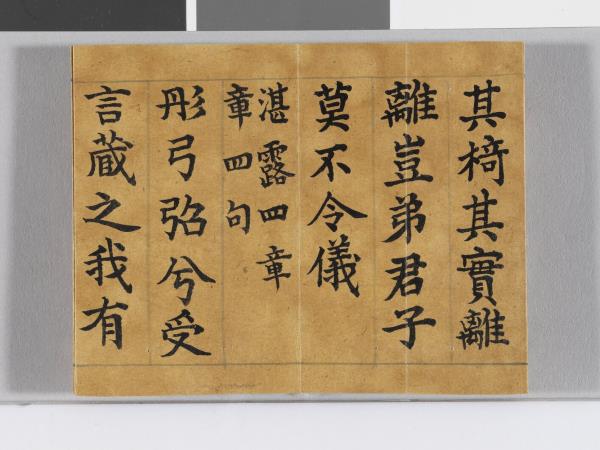 其椅其實離
離豈弟君子
莫不令儀
湛露四章
章四句
彤弓弨兮受
言蔵之我有